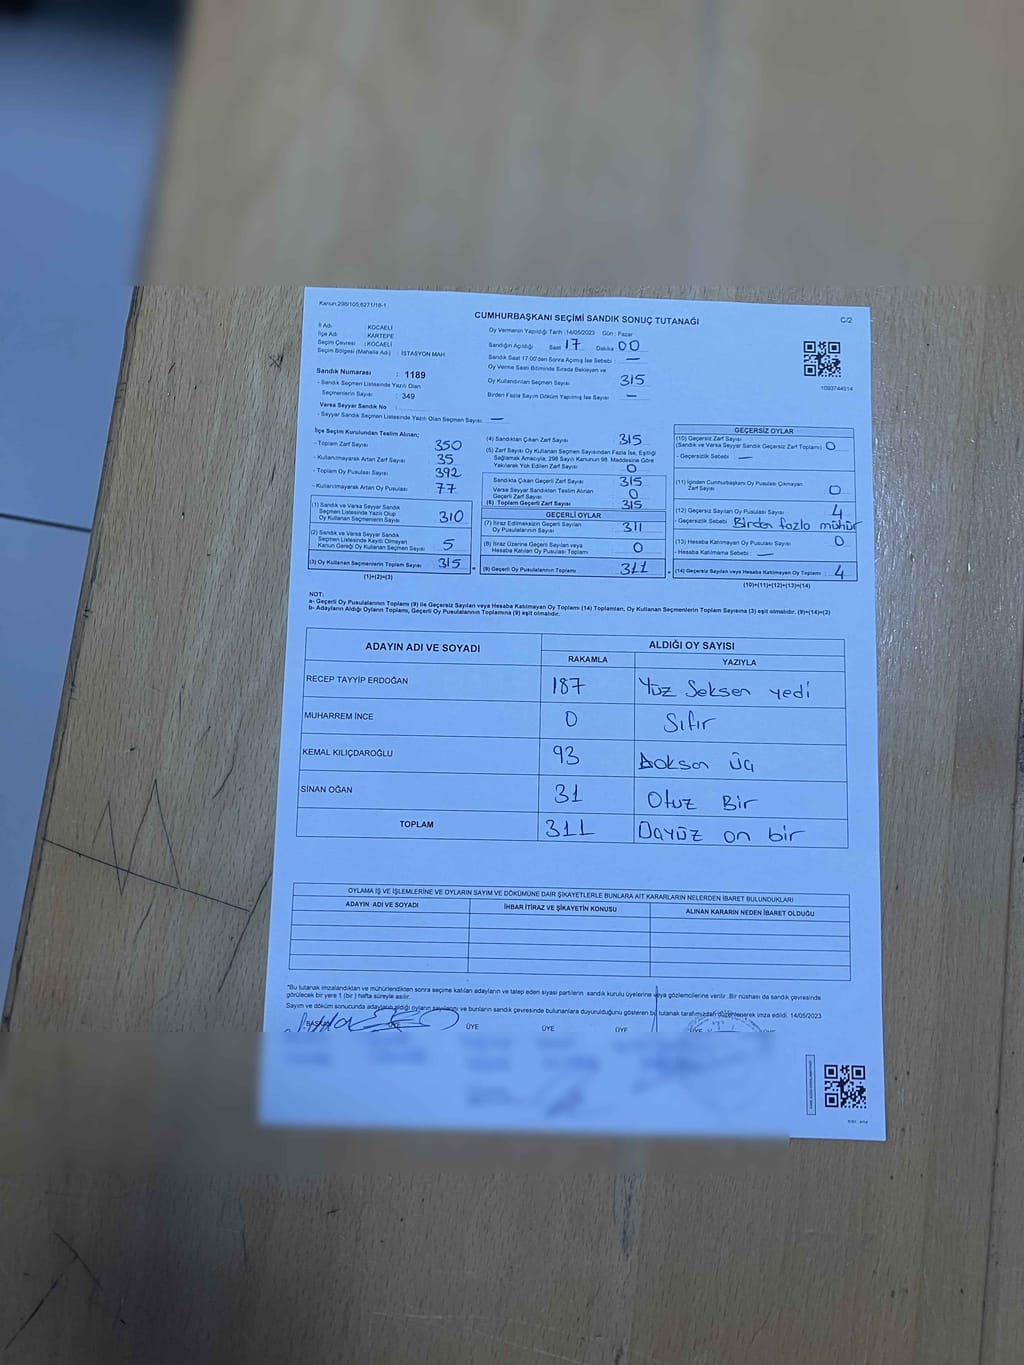 Kanun:298/105,6271/18-1
CUMHURBAŞKANI SEÇİMİ SANDIK SONUÇ TUTANAĞI
C/2
İl Adı : KOCAELİ
İlçe Adı : KARTEPE
Seçim Çevresi : KOCAELİ
Seçim Bölgesi (Mahalle Adı) : İSTASYON MAH
Sandık Numarası : 1189
- Sandık Seçmen Listesinde Yazılı Olan
Seçmenlerin Sayısı : 349
Varsa Seyyar Sandık No :
- Seyyar Sandık Seçmen Listesinde Yazılı Olan Seçmen Sayısı : —
Oy Vermenin Yapıldığı Tarih :14/05/2023 Gün : Pazar
Sandığın Açıldığı Saat 17 Dakika 00
Sandık Saat 17:00'den Sonra Açılmış İse Sebebi : —
Oy Verme Saati Bitiminde Sırada Bekleyen ve
Oy Kullandırılan Seçmen Sayısı 315
Birden Fazla Sayım Döküm Yapılmış İse Sayısı : —
1093744514
İlçe Seçim Kurulundan Teslim Alınan;
- Toplam Zarf Sayısı 350
- Kullanılmayarak Artan Zarf Sayısı 35
- Toplam Oy Pusulası Sayısı 392
- Kullanılmayarak Artan Oy Pusulası 77
(1) Sandık ve Varsa Seyyar Sandık
Seçmen Listesinde Yazılı Olup
Oy Kullanan Seçmenlerin Sayısı 310
(2) Sandık ve Varsa Seyyar Sandık
Seçmen Listesinde Kayıtlı Olmayan
Kanun Gereği Oy Kullanan Seçmen Sayısı 5
(3) Oy Kullanan Seçmenlerin Toplam Sayısı 315
(1)+(2)=(3)
(4) Sandıktan Çıkan Zarf Sayısı 315
(5) Zarf Sayısı Oy Kullanan Seçmen Sayısından Fazla İse, Eşitliği
Sağlamak Amacıyla; 298 Sayılı Kanunun 98. Maddesine Göre
Yakılarak Yok Edilen Zarf Sayısı 0
Sandıkta Çıkan Geçerli Zarf Sayısı 315
Varsa Seyyar Sandıktan Teslim Alınan
Geçerli Zarf Sayısı 0
(6) Toplam Geçerli Zarf Sayısı 315
GEÇERLİ OYLAR
(7) İtiraz Edilmeksizin Geçerli Sayılan
Oy Pusulalarının Sayısı 311
(8) İtiraz Üzerine Geçerli Sayılan veya
Hesaba Katılan Oy Pusulası Toplamı 0
(9) Geçerli Oy Pusulalarının Toplamı 311
GEÇERSİZ OYLAR
(10) Geçersiz Zarf Sayısı
(Sandık ve Varsa Seyyar Sandık Geçersiz Zarf Toplamı) 0
- Geçersizlik Sebebi : —
(11) İçinden Cumhurbaşkanı Oy Pusulası Çıkmayan
Zarf Sayısı 0
(12) Geçersiz Sayılan Oy Pusulası Sayısı 4
- Geçersizlik Sebebi Birden fazla mühür
(13) Hesaba Katılmayan Oy Pusulası Sayısı 0
- Hesaba Katılmama Sebebi : —
(14) Geçersiz Sayılan veya Hesaba Katılmayan Oy Toplamı 4
(10)+(11)+(12)+(13)=(14)
NOT:
a- Geçerli Oy Pusulalarının Toplamı (9) ile Geçersiz Sayılan veya Hesaba Katılmayan Oy Toplamı (14) Toplamları, Oy Kullanan Seçmenlerin Toplam Sayısına (3) eşit olmalıdır. (9)+(14)=(3)
b- Adayların Aldığı Oyların Toplamı, Geçerli Oy Pusulalarının Toplamına (9) eşit olmalıdır.
ADAYIN ADI VE SOYADI ALDIĞI OY SAYISI
RAKAMLA YAZIYLA
RECEP TAYYİP ERDOĞAN 187 Yüz Seksen yedi
MUHARREM İNCE 0 Sıfır
KEMAL KILIÇDAROĞLU 93 Doksan Üç
SİNAN OĞAN 31 Otuz Bir
TOPLAM 311 Üçyüz on bir
OYLAMA İŞ VE İŞLEMLERİNE VE OYLARIN SAYIM VE DÖKÜMÜNE DAİR ŞİKAYETLERLE BUNLARA AİT KARARLARIN NELERDEN İBARET BULUNDUKLARI
ADAYIN ADI VE SOYADI İHBAR İTİRAZ VE ŞİKAYETİN KONUSU ALINAN KARARIN NEDEN İBARET OLDUĞU
*Bu tutanak imzalandıktan ve mühürlendikten sonra seçime katılan adayların ve talep eden siyasi partilerin sandık kurulu üyelerine veya gözlemcilerine verilir. Bir nüshası da sandık çevresinde
görülecek bir yere 1 (bir) hafta süreyle asılır.
Sayım ve döküm sonucunda adayların aldığı oyların sayılarını ve bunların sandık çevresinde bulunanlara duyurulduğunu gösteren bu tutanak tarafımızdan düzenlenerek imza edildi. 14/05/2023
BAŞKAN ÜYE ÜYE ÜYE ÜYE ÜYE ÜYE